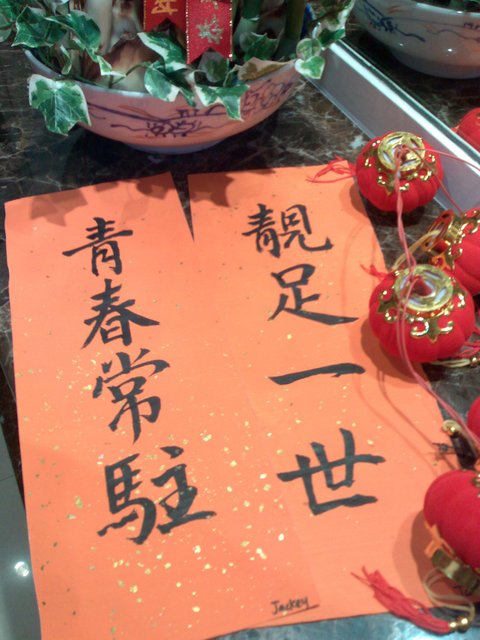 靚足一世
青春常駐
Jackey